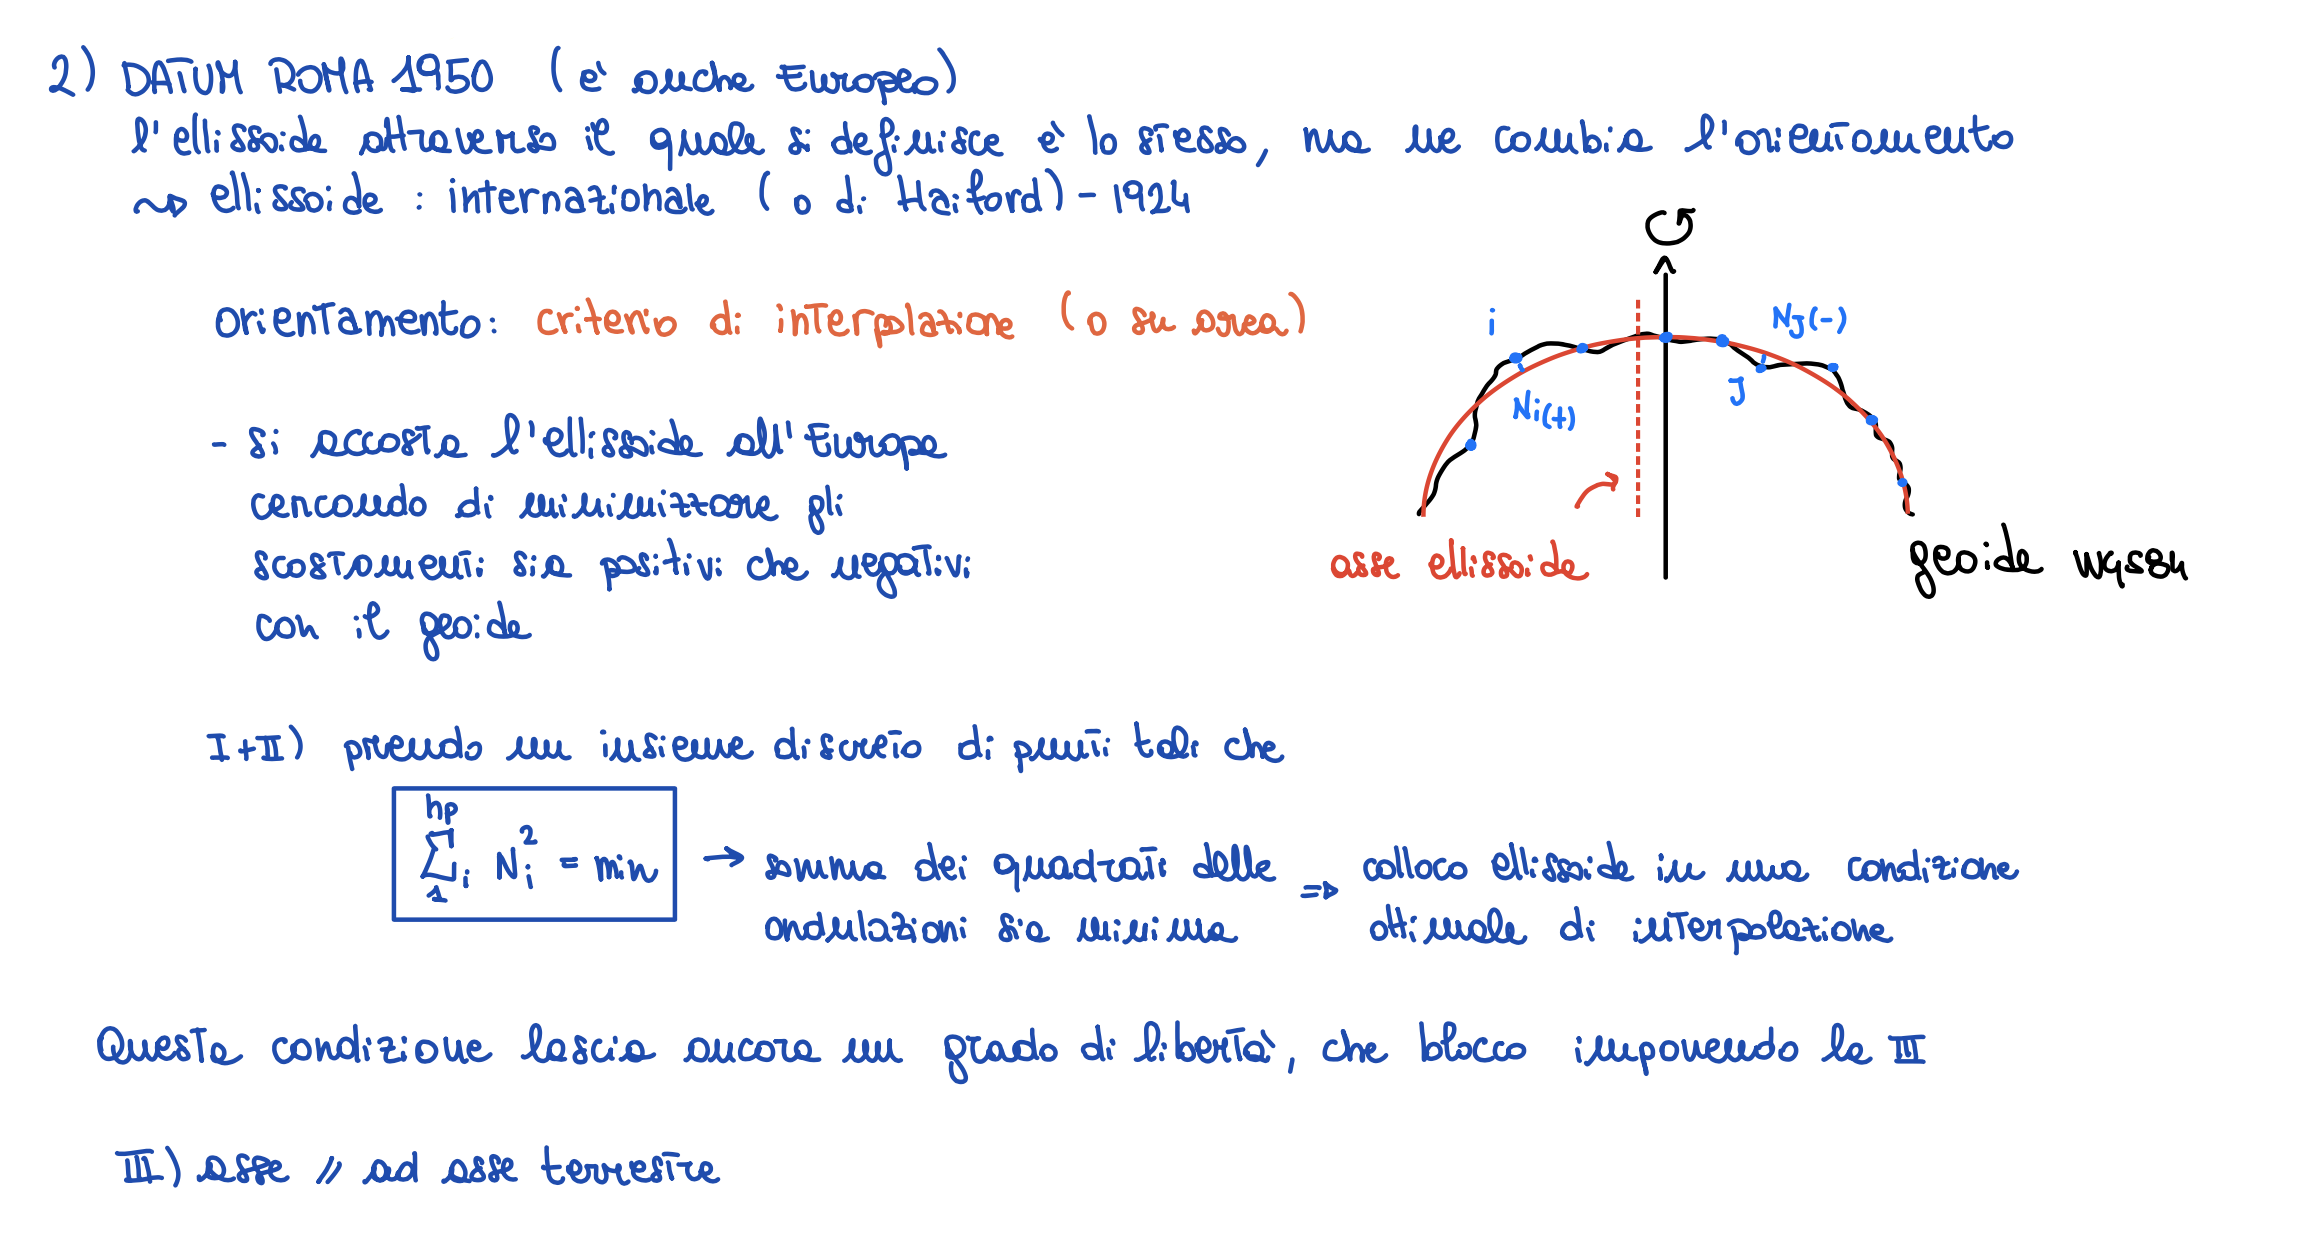 2) DATUM ROMA 1950 (e' anche Europeo)
l'ellissoide attraverso il quale si definisce e' lo stesso, ma ne cambia l'orientamento
~> ellissoide : internazionale (o di Haiford) - 1924
orientamento: criterio di interpolazione (o su area)
i
Nj(-)
Ni(+)
J
- si accosta l'ellissoide all'Europa
cercando di minimizzare gli
scostamenti sia positivi che negativi
con il geoide
asse ellissoide
geoide WGS84
I+II) prendo un insieme discreto di punti tali che
np
Σi Ni² = min → somma dei quadrati delle => colloco ellissoide in una condizione
1
ondulazioni sia minima ottimale di interpolazione
Questa condizione lascia ancora un grado di libertà, che blocco imponendo la III
III) asse // ad asse terrestre